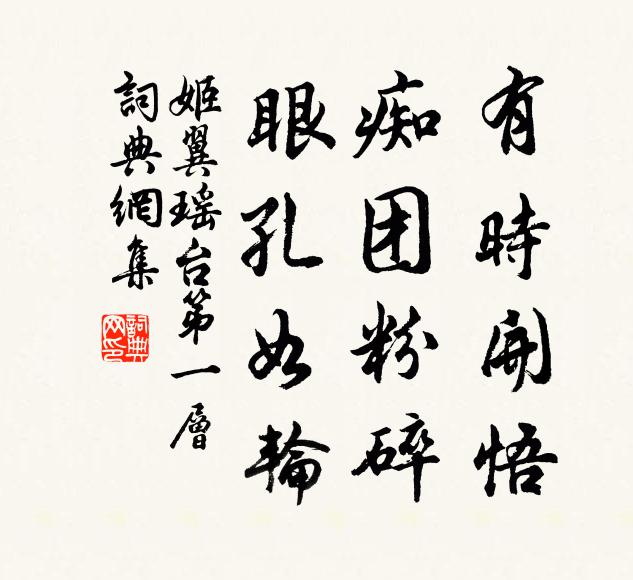 有時開悟
痴团粉碎
眼孔如輪
姬翼瑶台第一層
詞典網集
詞典网印